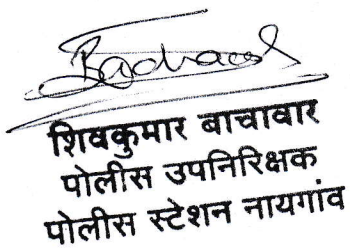 शिवकुमार बाचावार
पोलीस उपनिरिक्षक
पोलीस स्टेशन नायगांव